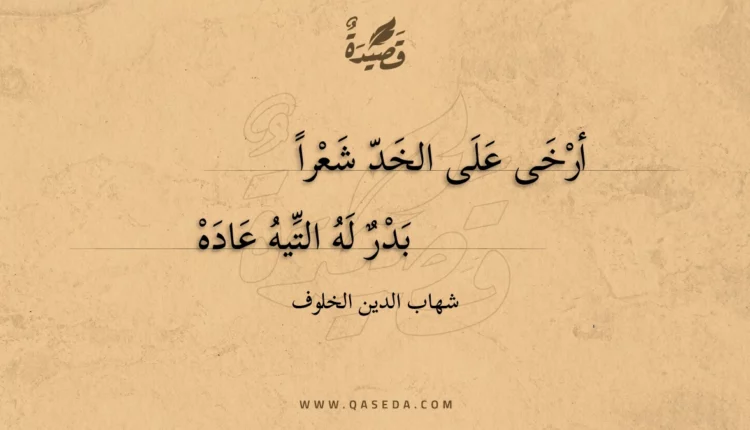 قَصِيْدَةٌ
أرْخَى عَلَى الخَدّ شَعْراً
بَدْرٌ لَهُ التِّيهُ عَادَهْ
شهاب الدين الخلوف
WWW.QASEDA.COM